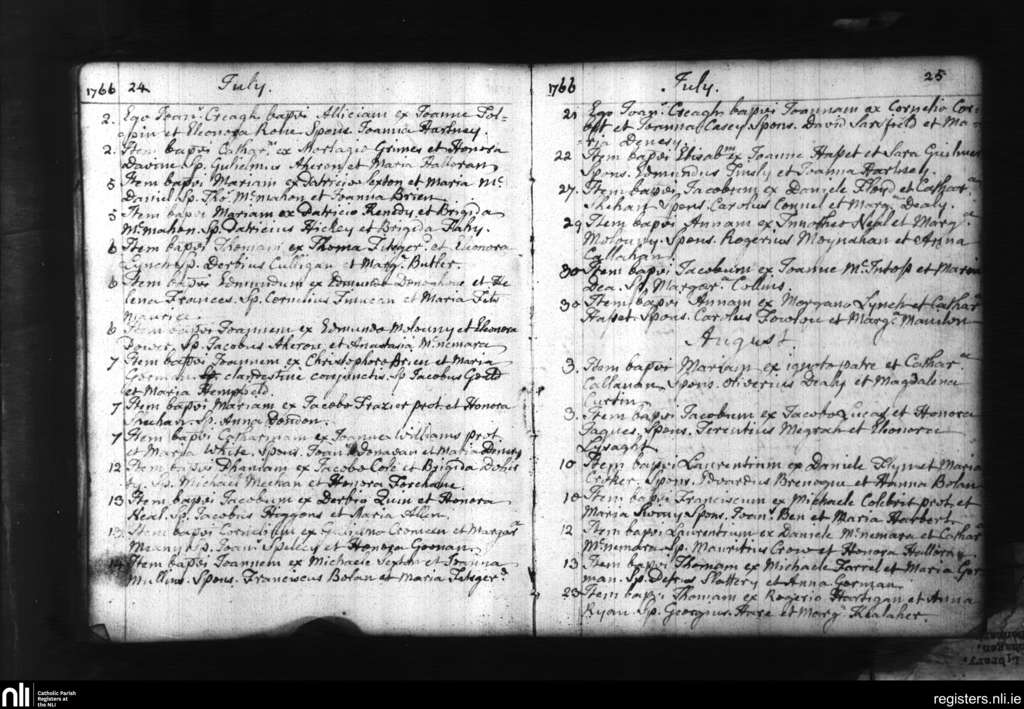 1766 24 July.
2. Ego Joanˢ Creagh bapvi Alliciam ex Joanne Tol-
opin et Eleonora Rohe Spons. Joannia Hartney.
2. Item bapvi Catharᵐ ex Mortagio Grimes et Honora
Davine Sp. Gulielmus Aheron et Maria Halloran
5 Item bapvi Mariam ex Patricio Sexton et Maria Mᶜ
Daniel Sp. Tho. McMahon et Joanna Brien
5 Item bapvi Mariam ex Patricio Kendy et Brigida
McMahon. Sp. Patricius Hickey et Brigida Flahy.
6 Item bapvi Thomam ex Thoma Fitsgerᵈ et Elionora
Lynch Sp. Derbius Culligan et Margᵗ Butler.
6 Item bapvi Edmundum ex Edmundo Donoghoe et He
lena Frances. Sp. Cornelius Tinucan et Maria Fits
maurice.
6 Item bapvi Joannem ex Edmundo Molouny et Eleonora
Power. Sp. Jacobus Aheron et Anastasia McNemara
7 Item bapvi Joannem ex Christophoro Brien et Maria
clandestine conjunctis. Sp. Jacobus
et Maria Hempfield.
7 Item bapvi Mariam ex Jacobo Frazier prot. et Honora
Meehan. Sp. Anna Dondon.
7 Item bapvi Catharinam ex Joanne Williams prot.
et Maria White, Spons. Joanˢ Donavan et Maria
12 Item bapvi ex Jacobo Cole et Brigida
Sp. Michael Meehan et Honora
13 Item bapvi Jacobum ex Derbio Quin et Honora
Neal. Sp. Jacobus Higgons et Maria Allen.
13 Item bapvi Cornelium ex Gulielmo Cromeen et Margarᵗ
Meany Sp. Joanˢ Spellcy et Honora Goonan.
14 Item bapvi Joannem ex Michaele Sexton et Joanna
Mullins. Spons. Franciscus Bolan et Maria Fitsgerᵈ
1766 July. 25
21 Ego Joanˢ Creagh bapvi Joannam ex Cornelio Cor-
bet et Joanna Casey Spons. David Sarsfield et Ma-
ria Denesy.
22 Item bapvi Elisabᵐ ex Joanne Hasset et Sara
Spons. Edmundus Tinsly et Joanna Hartney.
27 Item bapvi Jacobum ex Daniele Floyd et Catharᵃ
Shihan Spons. Carolus Connel et Marg. Dealy.
29 Item bapvi Annam ex Timotheo Neal et Margᵗᵃ
Molouny. Spons. Rogerius Moynahan et Anna
Callahan
30 Item bapvi Jacobum ex Joanne McIntosh et Maria
Dea. Sp. Margarᵃ Collins.
30 Item bapvi Annam ex Morgano Lynch et Catharᵃ
Hasset. Spons. Carolus Fowlou et Margᵗ Maunton
August.
3. Item bapvi Mariam ex ignoto patre et Catharᵃ
Callanan, Spons. Oliverius Dealy et Magdalena
Curtin.
3. Item bapvi Jacobum ex Jacobo Lucas et Honora
Jaques. Spons. Terentius Megrah et Elionora
Lysaght
10 Item bapvi Laurentium ex Daniele Flyn et Maria
Croker. Spons. Edvardus Brenaqu et Hanna Bolan
10 Item bapvi Franciscum ex Michaele Colebrit prot. et
Maria Swiny Spons. Joanˢ Ben et Maria Harbert.
12 Item bapvi Laurentium ex Daniele McNemara et Catharᵃ
McNemara Sp. Mauritius Crow et Honora Halloran
13 Item bapvi Thomam ex Michaele Farrel et Maria Gor
man. Sp. Petrus Slattery et Anna Gorman
23 Item bapvi Thomam ex Rogerio Hartigan et Anna
Ryan. Sp. Georgius Hare et Margᵗ Kealaher.
nli Catholic Parish
Registers at
the NLI
registers.nli.ie